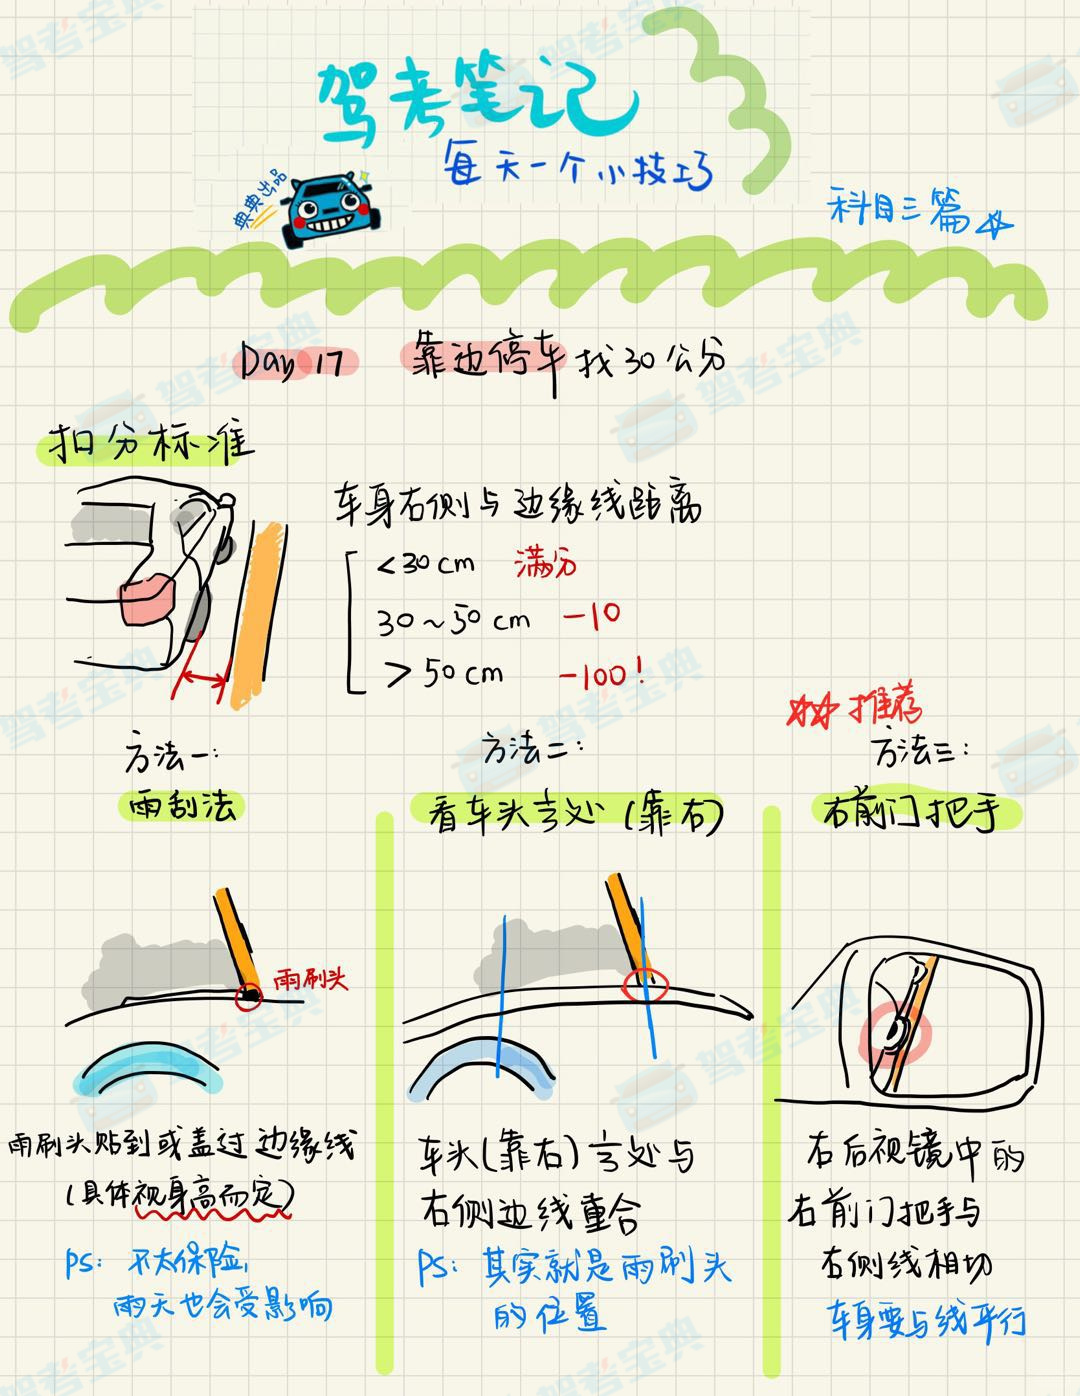 驾考笔记
每天一个小技巧
典典出品
科目三篇
Day 17 靠边停车找30公分
扣分标准
车身右侧与边缘线距离
<30cm 满分
30~50cm -10
>50cm -100!
方法一:
雨刮法
雨刷头
雨刷头贴到或盖过边缘线
(具体视身高而定)
PS: 不太保险,
雨天也会受影响
方法二:
看车头1/3处(靠右)
车头(靠右)1/3处与
右侧边线重合
PS: 其实就是雨刷头
的位置
推荐
方法三:
右前门把手
右后视镜中的
右前门把手与
右侧线相切
车身要与线平行
驾考宝典